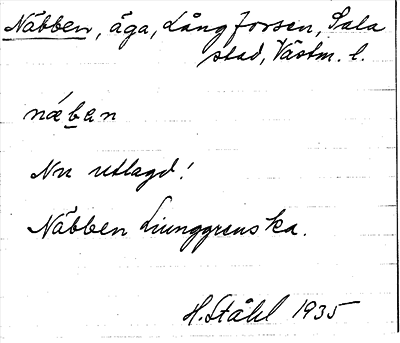 Näbben, äga, Långforsen, Sala
stad, Västm. l.
nǽban
Nu utlagd!
Näbben Liunggrenska.
H. Ståhl 1935